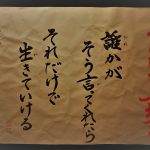 誰かが
そう言てくれたら
それだけで
生きていける